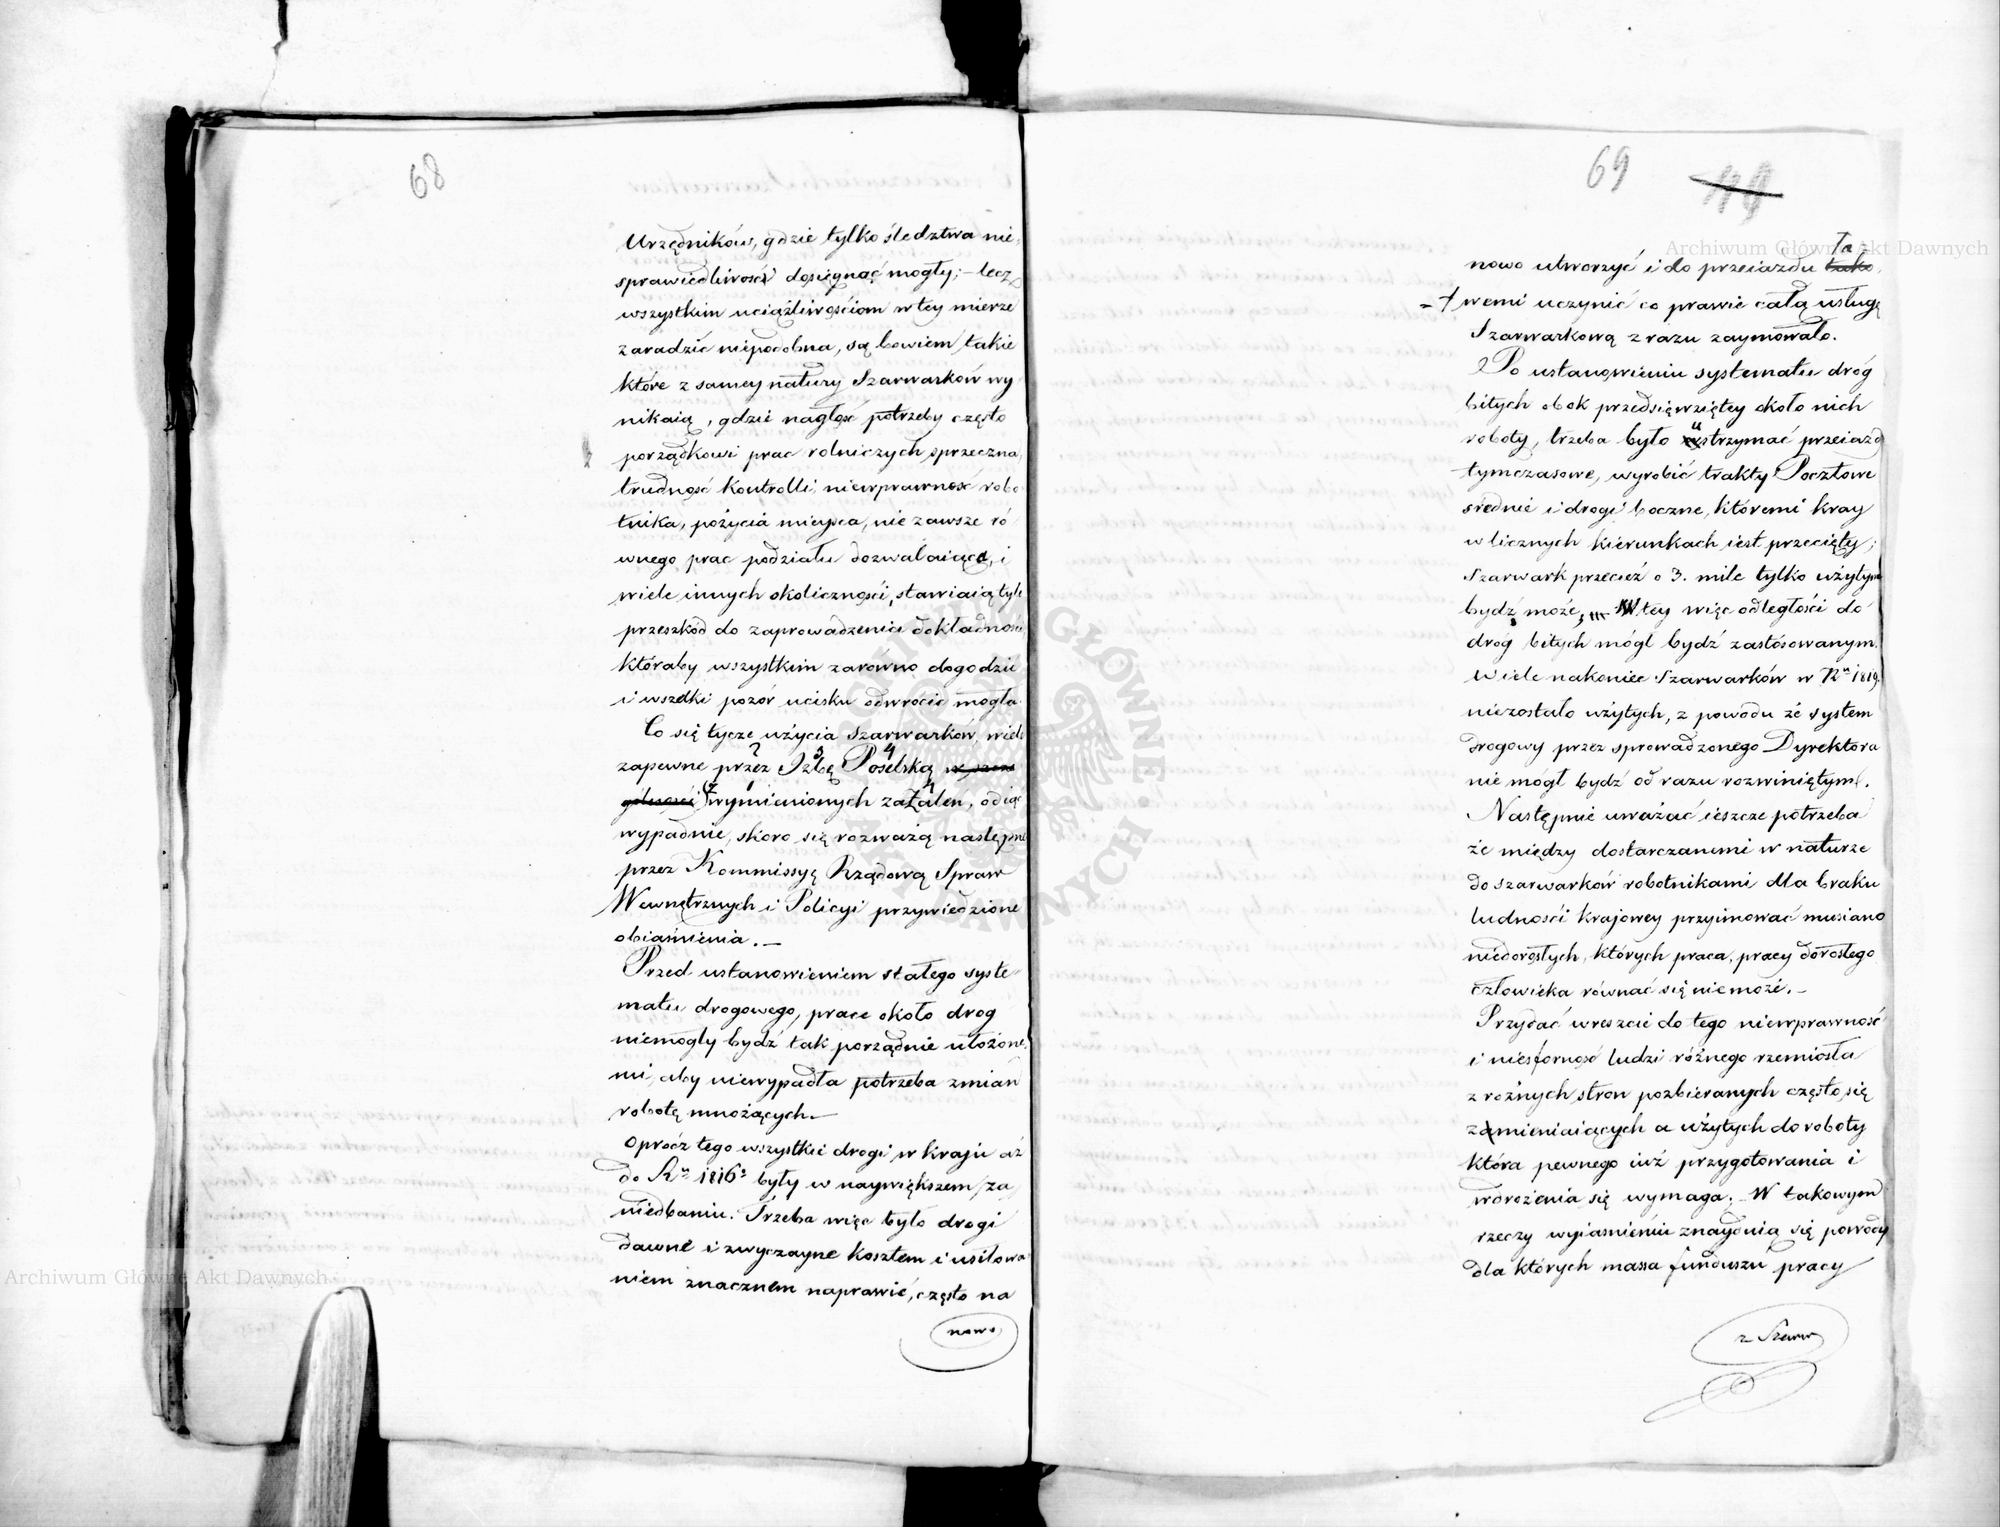 68
Urzędników, gdzie tylko śledztwa nie-
sprawiedliwość dosięgnąć mogły; – lecz
wszystkim uciążliwościom w tey mierze
zaradzić niepodobna, są bowiem takie
które z samey natury Szarwarków wy
nikaią, gdzie nagłość potrzeby często
porządkowi prac rolniczych sprzeczna,
trudność Kontrolli, niewprawność robo
tnika, pożycia mieysca, nie zawsze ró
wnego prac podziału dozwalaiące, i
wiele innych okoliczności, stawiaią tyle
przeszkód do zaprowadzenia dokładności
któraby wszystkim zarówno dogodzić
i wszelki pozór ucisku odwrócić mogła.
Co się tycze użycia Szarwarków, wiele
zapewne przez Izbę Poselską
wymienionych zażaleń, odiąć
wypadnie, skoro się rozważą następne
przez Kommissyę Rządową Spraw
Wewnętrznych i Policyi przywiedzione
obiaśnienia. –
Przed ustanowieniem stałego syste-
matu drogowego, prace około drog
niemogły bydź tak porządnie ułożone-
mi, aby niewypadła potrzeba zmian
robotę mnożących. –
Oprócz tego wszystkie drogi w kraju aż
do Ru 1816o były w naywiększem za
niedbaniu. Trzeba więc było drogi
dawne i zwyczayne kosztem i usiłowa
niem znacznem naprawić, często na
nowo
69
Archiwum Główne Akt Dawnych
Ta-
nowo utworzyć i do przeiazdu tako.
wemi uczynić co prawie całą usługę
Szarwarkową z razu zaymowało.
Po ustanowieniu systematu dróg
bitych obok przedsięwziętey około nich
roboty, trzeba było ustrzymać przeiazd
tymczasowe, wyrobić trakty Pocztowe
średnie i drogi boczne, któremi kray
w licznych kierunkach iest przecięty;
Szarwark przecież o 3. mile tylko użytym
bydź może, W tey więc odległości do
dróg bitych mógł bydź zastósowanym.
Wiele nakoniec Szarwarków w Ru 1819.
niezostało użytych, z powodu że system
drogowy przez sprowadzonego Dyrektora
nie mógł bydź od razu rozwiniętym.
Następnie uważać ieszcze potrzeba
że między dostarczanemi w naturze
do szarwarków robotnikami dla braku
ludności krajowey przyimować musiano
niedorosłych, których praca, pracy dorosłego
człowieka równać się niemoże. –
Przydać wreszcie do tego niewprawność
i niesforność ludzi różnego rzemiosła
z rożnych stron pozbieranych często się
zamieniaiących a użytych do roboty
która pewnego iuż przygotowania i
wdrożenia się wymaga. W takowym
rzeczy wyiaśnieniu znayduią się powody
dla których massa funduszu pracy
z Szarw
Archiwum Główne Akt Dawnych
ARCHIWUM GŁÓWNE AKT DAWNYCH